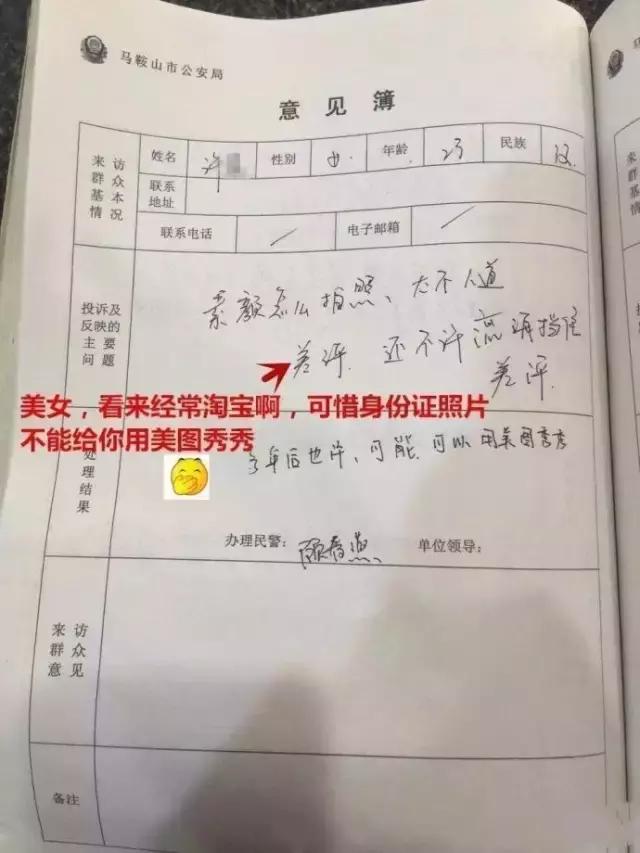 马鞍山市公安局
意见簿
来访群众基本情况
姓名 许 性别 女 年龄 23 民族 汉
联系地址
联系电话 / 电子邮箱 /
投诉及反映的主要问题
素颜怎么拍照、太不人道
差评. 还不许流海挡住
差评.
美女，看来经常淘宝啊，可惜身份证照片
不能给你用美图秀秀
处理结果
多年后也许、可能、可以用美图秀秀
办理民警： 顾春燕 单位领导：
来访群众意见
备注